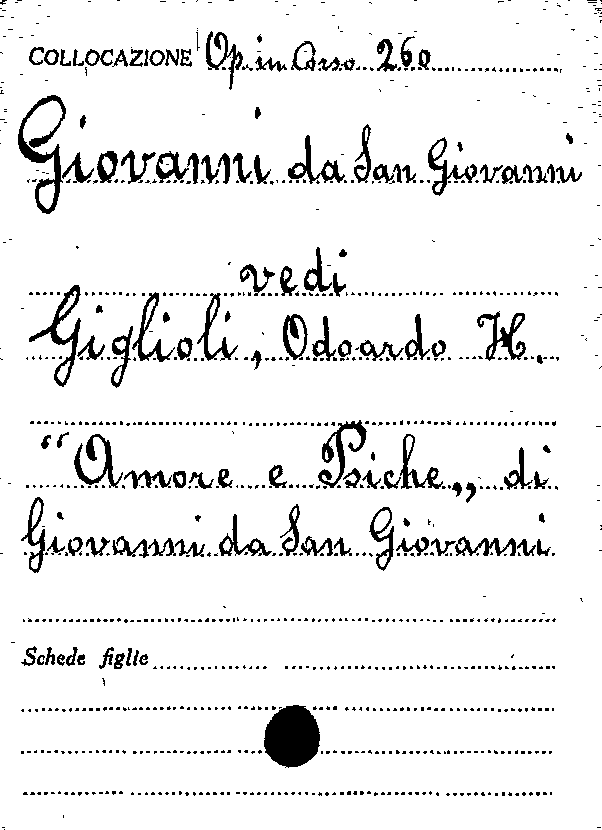 COLLOCAZIONE Op. in Corso 260
Giovanni da San Giovanni
vedi
Giglioli, Odoardo H.
“Amore e Psiche„ di
Giovanni da San Giovanni
Schede figlie